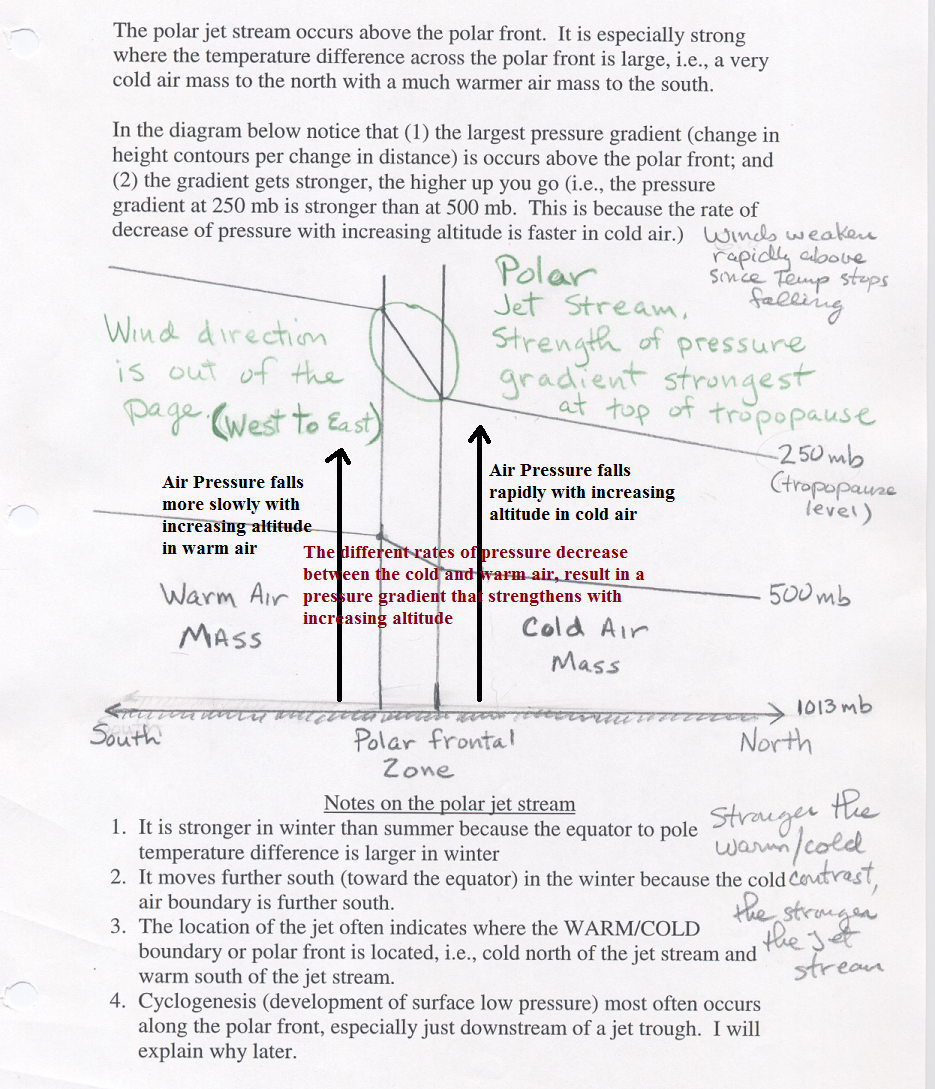 The polar jet stream occurs above the polar front. It is especially strong
where the temperature difference across the polar front is large, i.e., a very
cold air mass to the north with a much warmer air mass to the south.
In the diagram below notice that (1) the largest pressure gradient (change in
height contours per change in distance) is occurs above the polar front; and
(2) the gradient gets stronger, the higher up you go (i.e., the pressure
gradient at 250 mb is stronger than at 500 mb. This is because the rate of
decrease of pressure with increasing altitude is faster in cold air.)
Winds weaken
rapidly above
since Temp stops
falling
Polar
Jet Stream,
Strength of pressure
gradient strongest
at top of tropopause
Wind direction
is out of the
page. (West to East)
250 mb
(tropopause
level)
Air Pressure falls
more slowly with
increasing altitude
in warm air
Air Pressure falls
rapidly with increasing
altitude in cold air
The different rates of pressure decrease
between the cold and warm air, result in a
pressure gradient that strengthens with
increasing altitude
500 mb
Warm Air
Mass
Cold Air
Mass
1013 mb
South
Polar frontal
Zone
North
Notes on the polar jet stream
1. It is stronger in winter than summer because the equator to pole
temperature difference is larger in winter
2. It moves further south (toward the equator) in the winter because the cold
air boundary is further south.
3. The location of the jet often indicates where the WARM/COLD
boundary or polar front is located, i.e., cold north of the jet stream and
warm south of the jet stream.
4. Cyclogenesis (development of surface low pressure) most often occurs
along the polar front, especially just downstream of a jet trough. I will
explain why later.
Stronger the
warm/cold
contrast,
the stronger
the jet
stream